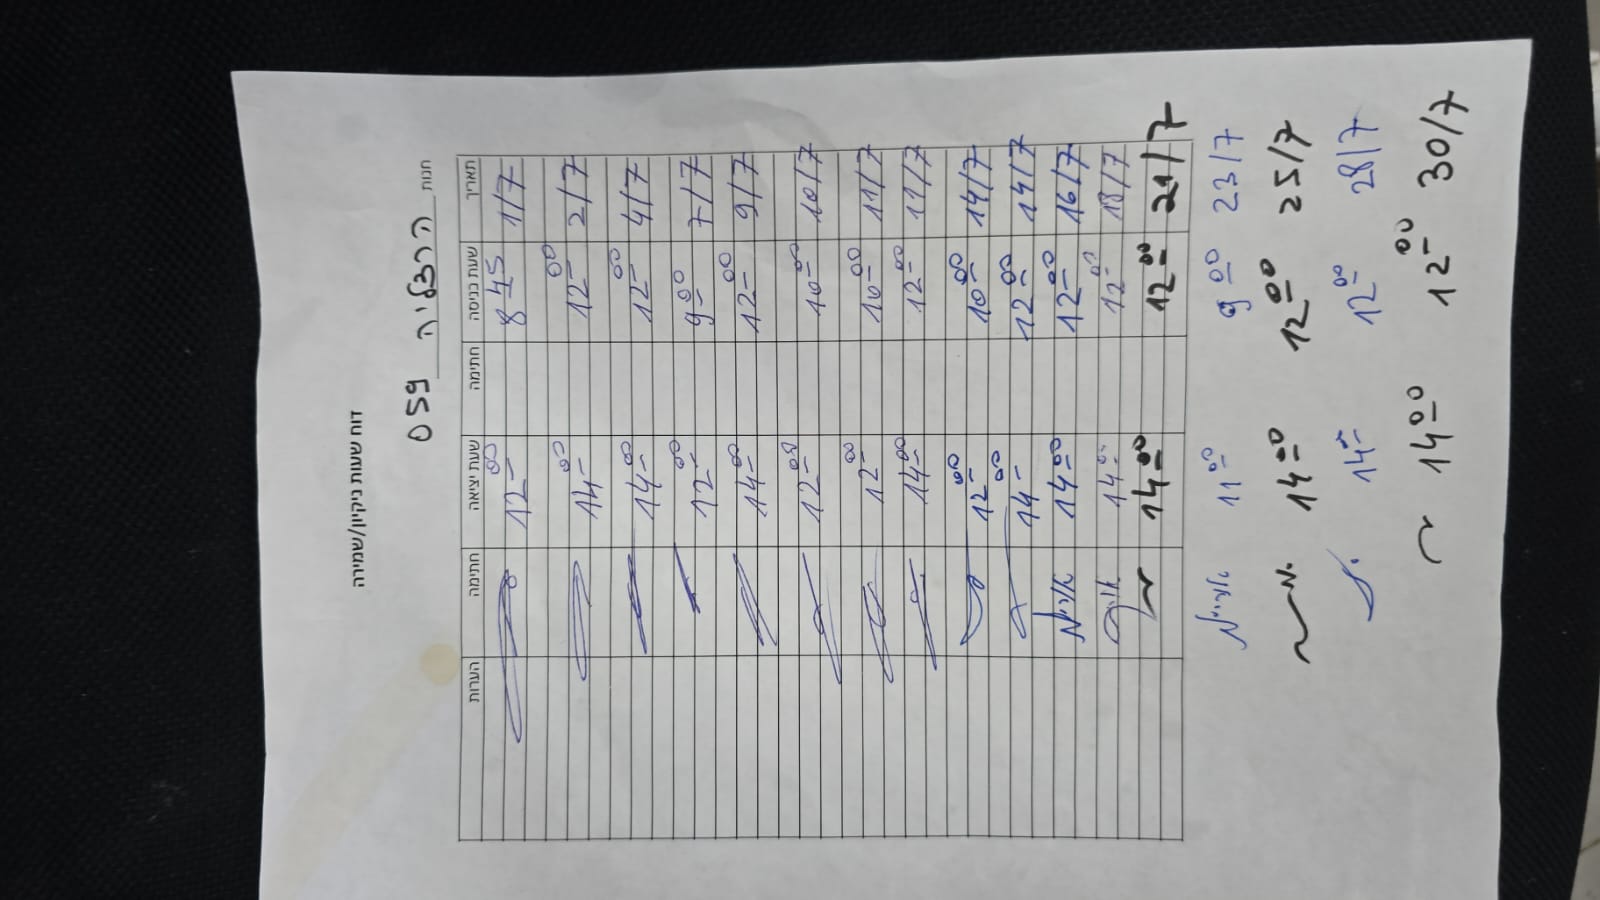 דוח שעות ניקיון/שמירה
חנות הרצליה 059
תאריך שעת כניסה חתימה שעת יציאה חתימה הערות
1/7 8:45 12:00
2/7 12:00 14:00
4/7 12:00 14:00
7/7 9:00 12:00
9/7 12:00 14:00
10/7 10:00 12:00
11/7 10:00 12:00
11/7 12:00 14:00
14/7 10:00 12:00
14/7 12:00 14:00
16/7 12:00 14:00
18/7 12:00 14:00
21/7 12:00 14:00
23/7 9:00 11:00
25/7 12:00 14:00
28/7 12:00 14:00
30/7 12:00 14:00